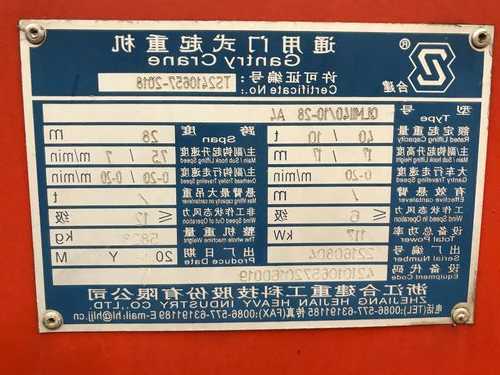 通用门式起重机
Gantry Crane
许可证编号: TS2410657-2018
Certificate No.:
® 合建
型号 Type QLMH40/10-28 A4
额定起重量 Rated Lifting Capacity 40 / 10 t 跨度 Span 28 m
主/副钩起升高度 17 / 17 m 主/副钩起升速度 7.5 / 7 m/min
大车行走速度 Gantry Traveling Speed 0-20 m/min 主/副小车行走速度 0-20 / 0-20 m/min
有效悬臂 Effective cantilever / m 最大悬臂吊重 / t
工作状态风力 ≤ 6 级 非工作状态风力 ≤ 12 级
功率总容 Total Power 117 kW 整机重量 The whole Machine Weight kg
出厂编号 Serial Number 22160804 出厂日期 Produce Date 20 Y M
设备代码 Equipment Code 42101065720160019
浙江合建重工科技股份有限公司
ZHEJIANG HEJIAN HEAVY INDUSTRY CO.,LTD
电话(TEL):0086-577-63191185 传真(FAX):0086-577-63191189 E-mail:hj@hljj.cn